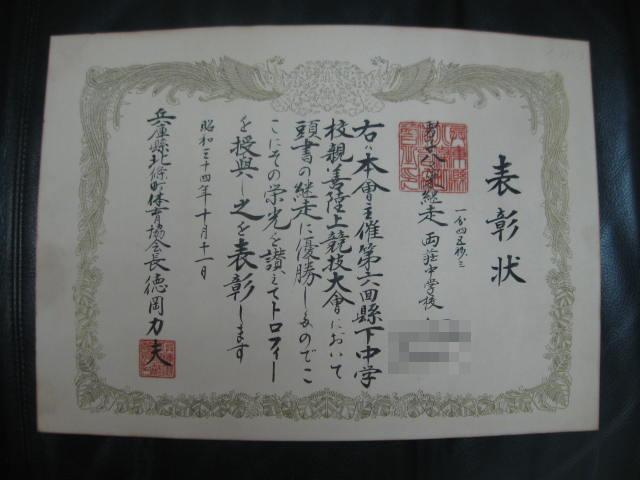 表彰状
一分四五秒三
男子八〇〇米継走 両荘中学校
右ハ本會主催第六回縣下中学
校親善陸上競技大會において
頭書の継走に優勝しものでこ
こにその栄光を讃えてトロフィー
を授與し之を表彰します
昭和三十四年十月十一日
兵庫縣北條町体育協会長 徳岡力夫